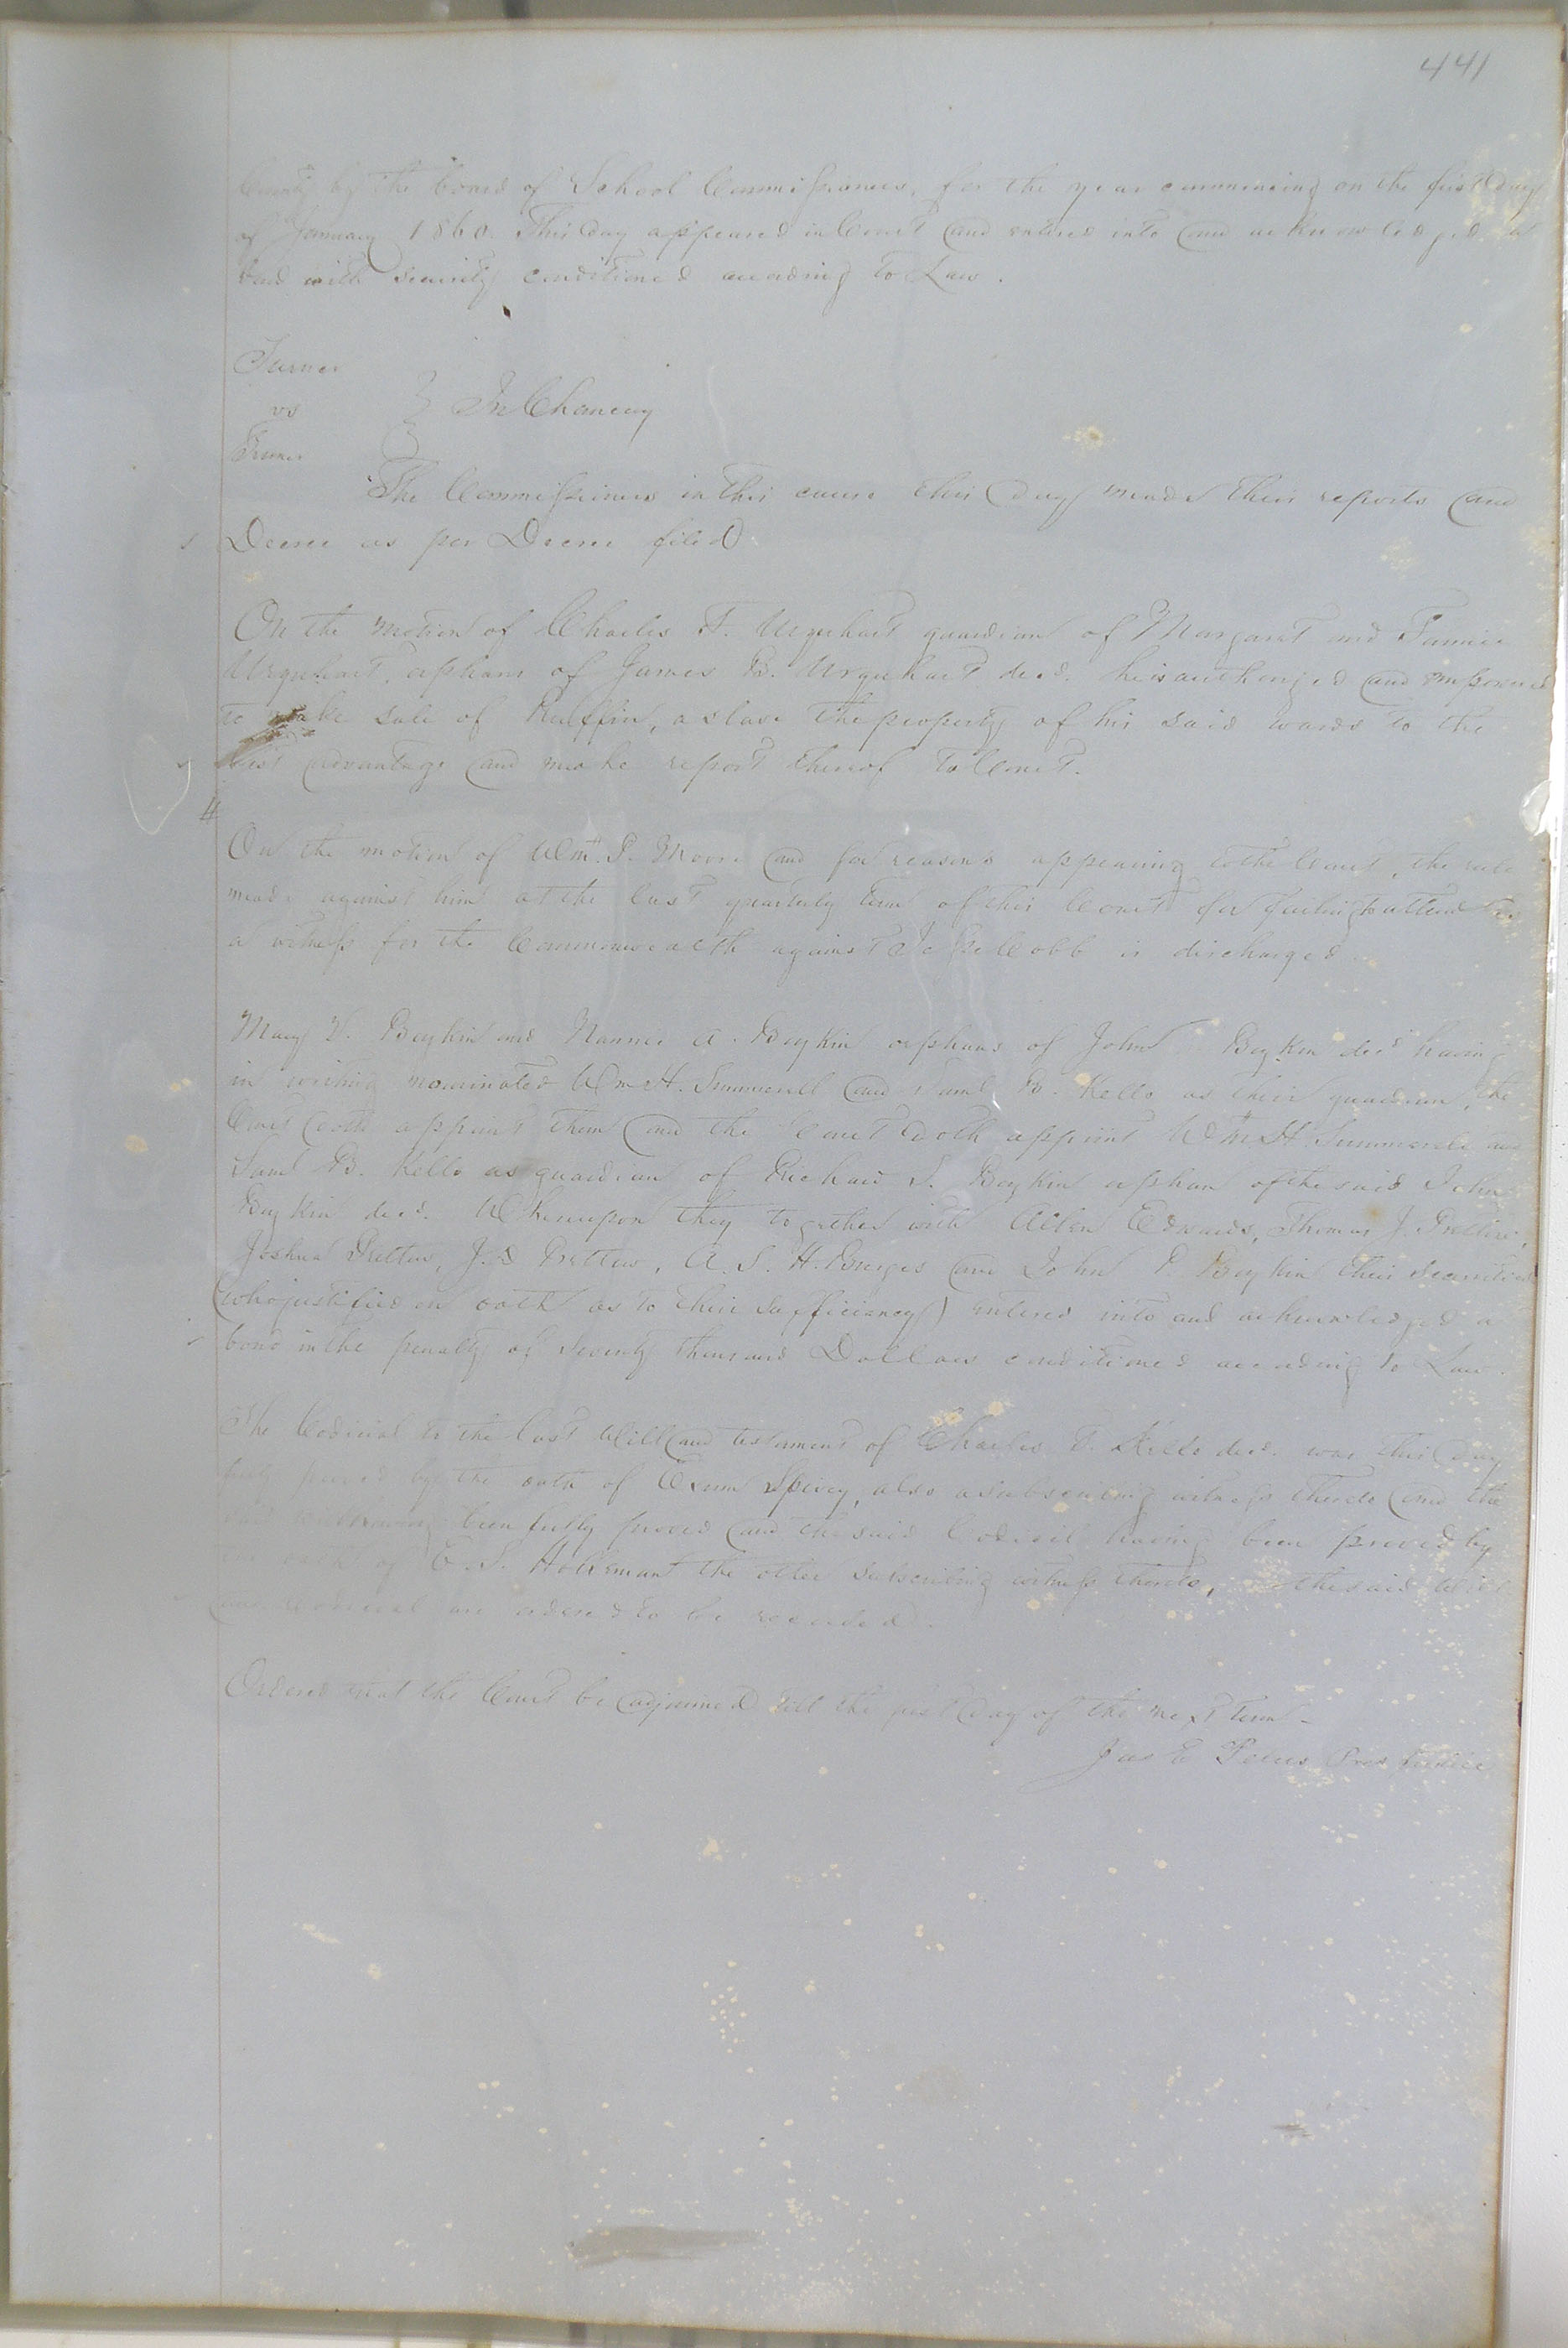 441
County by the board of School Commissioners, for the year commencing on the first day
of January 1860. This day appeared in Court and entered into and acknowledged a
bond with security conditioned according to Law.
Turner
vs } In Chancery
Turner
The Commissioners in this cause this day made their reports and
Decree as per Decree filed
On the motion of Charles F. Urquhart guardian of Margaret and Fannie
Urquhart, orphans of James B. Urquhart decd. he is authorized and empowered
to make sale of Ruffin, a slave the property of his said wards to the
best advantage and make report thereof to Court.
On the motion of Wm. P. Moore and for reasons appearing to the Court, the rule
made against him at the last quarterly term of this Court for failing to attend as
a witness for the Commonwealth against Jesse Cobb is discharged.
Mary V. Boykin and Nannie A. Boykin orphans of John Boykin decd having
in writing nominated Wm H. Summerell and Saml B. Kello as their guardian, the
Court doth appoint them and the Court doth appoint Wm H Summerell and
Saml B. Kello as guardian of Richard S. Boykin orphan of the said John
Boykin decd. Whereupon they together with Allen Edwards, Thomas J. Pretlow,
Joshua Pretlow, J. D Pretlow, A. S. H. Burges and John P. Boykin their securities
(who justified on oath as to their sufficiency) entered into and acknowledged a
bond in the penalty of Seventy thousand Dollars conditioned according to Law.
The Codicial to the last Will and testament of Charles F. Kello decd. was this day
fully proved by the oath of Exum Spivey, also a subscribing witness thereto and the
said having been fully proved and the said Codicil having been proved by
the oath of E. S. the other subscribing witness thereto, the said Will
and Codicial are ordered to be recorded.
Ordered that the Court be adjourned till the first day of the next term -
Jas E Peters Pres Justice